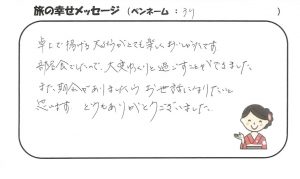 旅の幸せメッセージ (ペンネーム：      )
卓上で揚げる天ぷらがとても楽しくおいしかったです
部屋食でしたので、大変ゆっくりと過ごすことができました
また、機会がありましたら お世話になりたいと
思います どうもありがとうございました